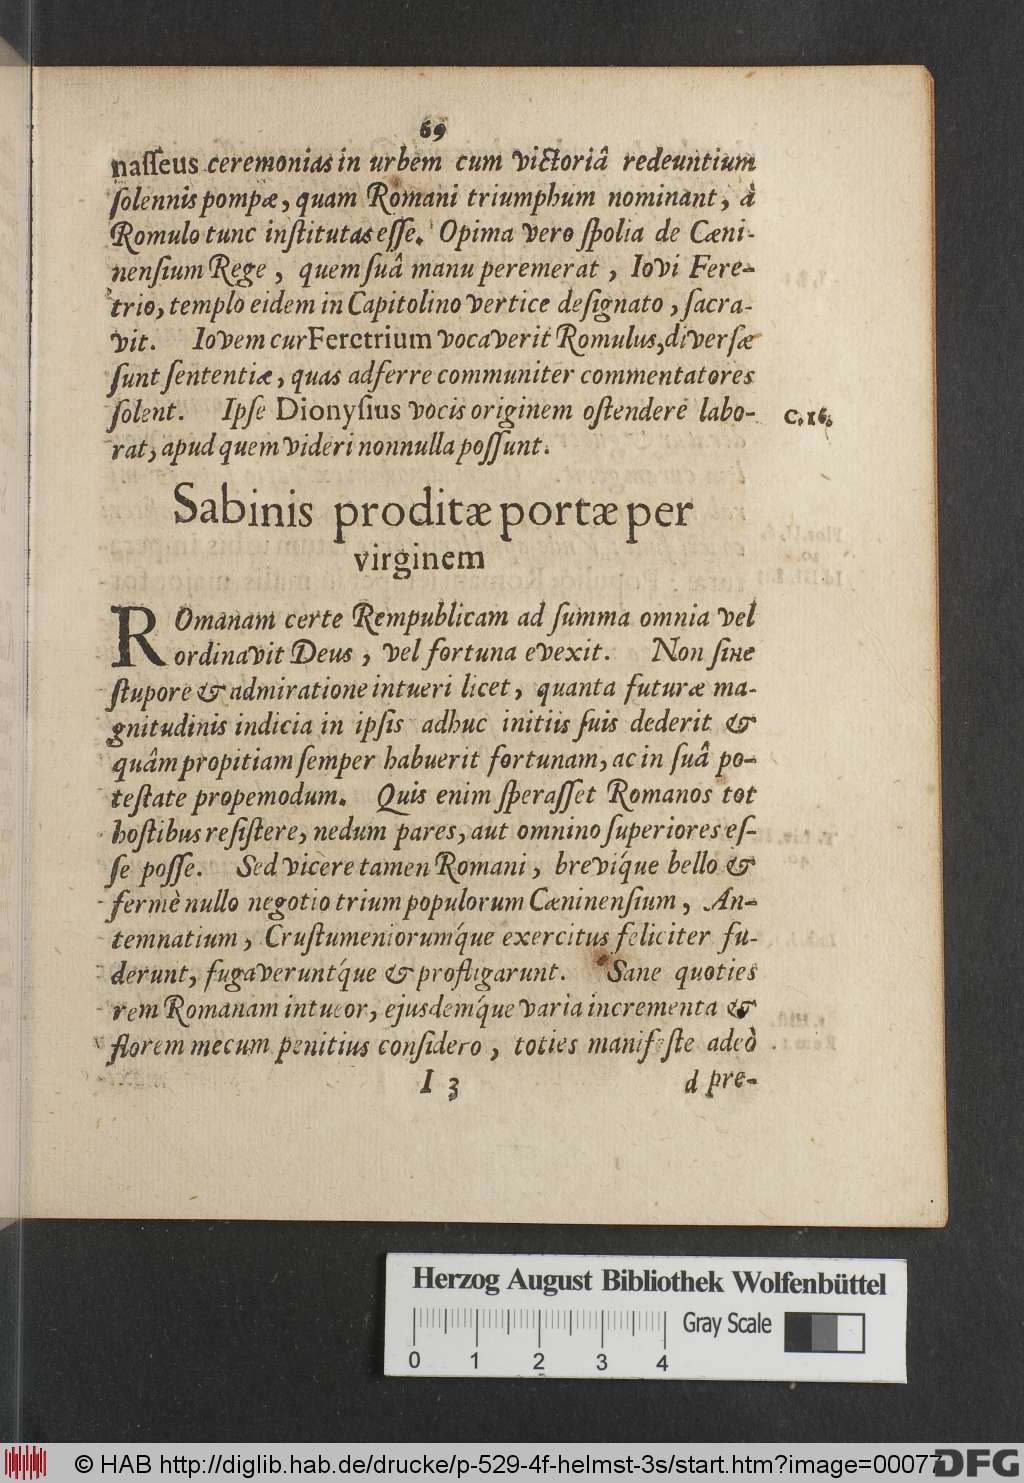 69
naſſeus ceremonias in urbem cum victoriâ redeuntium
ſolennis pompæ, quam Romani triumphum nominant, à
Romulo tunc inſtitutas eſſe. Opima vero ſpolia de Cæni-
nenſium Rege, quem ſuâ manu peremerat, Iovi Fere-
trio, templo eidem in Capitolino vertice deſignato, ſacra-
vit. Iovem cur Feretrium vocaverit Romulus, diverſæ
ſunt ſententiæ, quas adferre communiter commentatores
ſolent. Ipſe Dionyſius vocis originem oſtendere labo-
rat, apud quem videri nonnulla poſſunt.
C. 16.
Sabinis proditæ portæ per
virginem
ROmanam certe Rempublicam ad ſumma omnia vel
ordinavit Deus, vel fortuna evexit. Non ſine
ſtupore & admiratione intueri licet, quanta futuræ ma-
gnitudinis indicia in ipſis adhuc initiis ſuis dederit &
quâm propitiam ſemper habuerit fortunam, ac in ſuâ po-
teſtate propemodum. Quis enim ſperaſſet Romanos tot
hoſtibus reſiſtere, nedum pares, aut omnino ſuperiores eſ-
ſe poſſe. Sed vicere tamen Romani, brevíque bello &
fermè nullo negotio trium populorum Cæninenſium, An-
temnatium, Cruſtumeniorumque exercitus feliciter fu-
derunt, fugaveruntque & profligarunt. Sane quoties
rem Romanam intueor, ejusdemque varia incrementa &
florem mecum penitius conſidero, toties manifeſte adeò
I 3
d pre-
Herzog August Bibliothek Wolfenbüttel
Gray Scale
0 1 2 3 4
© HAB http://diglib.hab.de/drucke/p-529-4f-helmst-3s/start.htm?image=00077
DFG